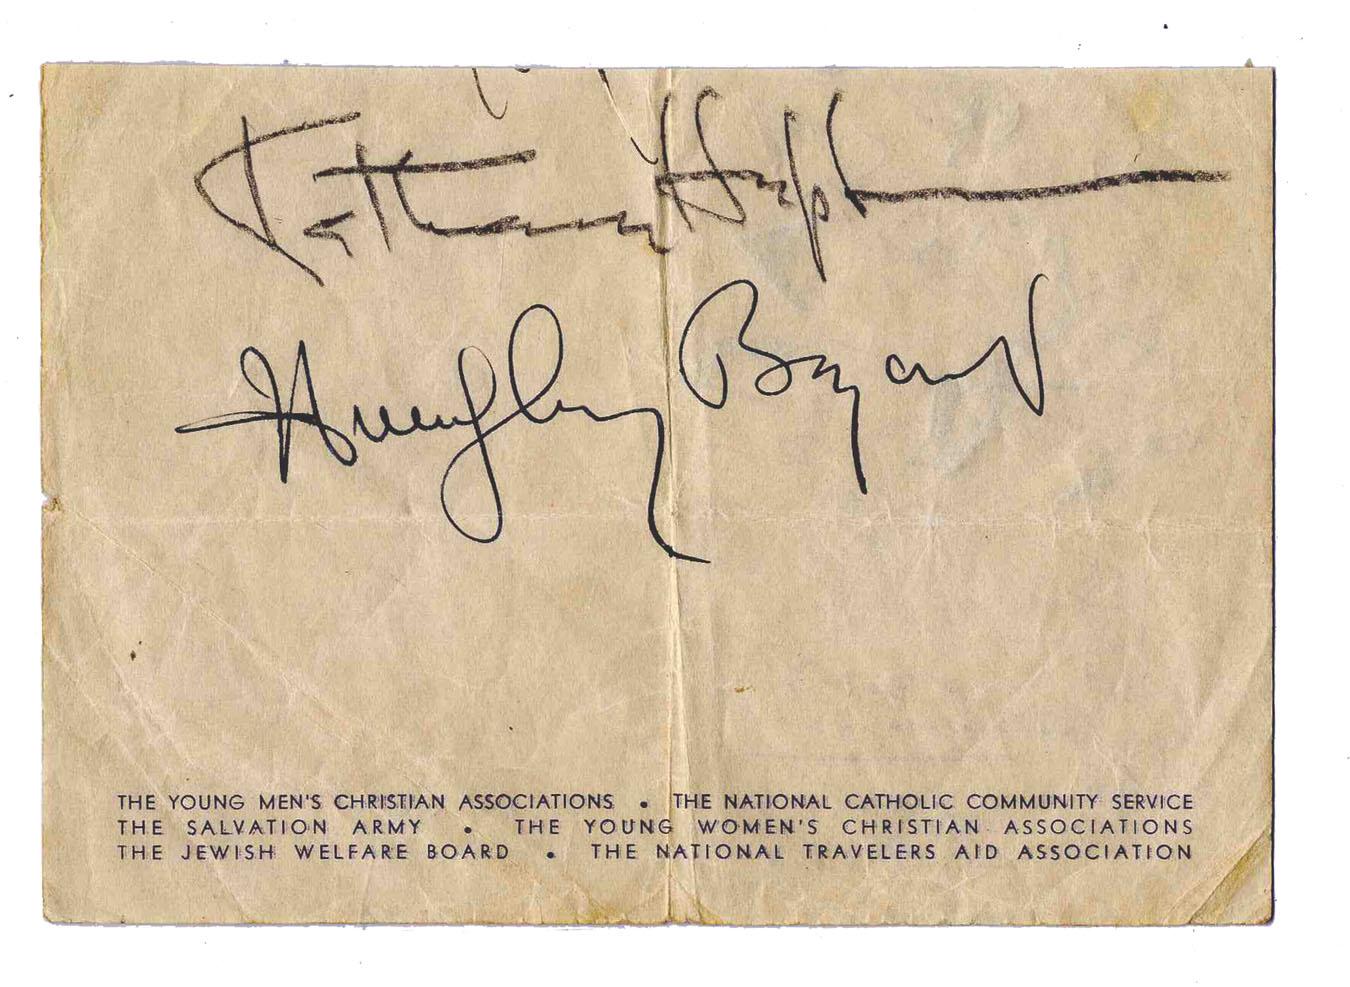 Katharine Hepburn
Humphrey Bogart
THE YOUNG MEN'S CHRISTIAN ASSOCIATIONS • THE NATIONAL CATHOLIC COMMUNITY SERVICE
THE SALVATION ARMY • THE YOUNG WOMEN'S CHRISTIAN ASSOCIATIONS
THE JEWISH WELFARE BOARD • THE NATIONAL TRAVELERS AID ASSOCIATION